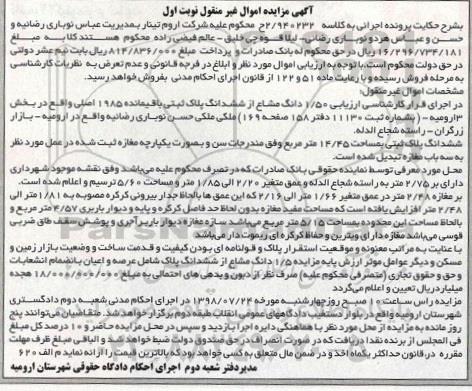 آگهی مزایده اموال غیر منقول نوبت اول
بشرح حکایت پرونده اجرائی به کلاسه ۲/۹۴۰۲۳۲ج محکوم علیه شرکت اروم تینار بمدیریت عباس نوباری رضائیه و
حسن و عباس هر دو نوباری رضائی- لیلا قوه چی خلیق - عالم فیضی زاده محکوم هستند کلا به مبلغ
۱۶/۲۹۶/۷۳۴/۱۸۱ ریال در حق محکوم له بانک صادرات و پرداخت مبلغ ۸۱۴/۸۳۶/۰۰۰ ریال بابت نیم عشر دولتی
در حق دولت محکوم است. با توجه به ارزیابی اموال مورد نظر و ابلاغ در فرجه قانونی و عدم تعرض به نظریات کارشناسی
به مرحله فروش رسیده و با رعایت ماده ۵۱ و ۱۲۲ از قانون اجرای احکام مدنی بفروش خواهد رسید.
مشخصات اموال غیرمنقول:
در اجرای قرار کارشناسی ارزیابی ۱/۵۰ دانگ مشاع از ششدانگ پلاک ثبتی باقیمانده ۱۹۸۵ اصلی واقع در بخش
۳ ارومیه - (شماره ثبت ۱۱۱۳۰ دفتر ۱۵۸ صفحه ۱۶۹) ملکی ملکی حسن نوباری رضائیه واقع در ارومیه - بازار
زرگران - راسته شجاع الدله.
ششدانگ پلاک ثبتی بمساحت ۱۴/۴۵ متر مربع وفق مندرجات سن و بصورت یکپارچه مغازه ثبت شده در عمل مورد نظر
به سه باب مغازه تبدیل شده است.
محل مورد معرفی توسط نماینده حقوقی بانک صادرات که در تصرف محکوم علیه می‌باشد وفق نقشه موجود شهرداری
دارای بر ۲/۷۵ متر به راسته شجاع الدله و عمق متغیر ۲/۲۰ الی ۱/۸۵ متر و مساحت ۵/۶۰ ترسیم و اعلام شده است.
بر مغازه ۲/۴۸ متر در عمق متغیر ۱/۶۶ متر الی ۲/۱۶ که این عمق ها بالحاظ جدار بیرونی کرکره مصوبه به ۱/۸۱ متر الی
۲/۳۸ متر افزایش یافته است که مساحت مفید مغازه بدون لحاظ حد فاصل کرکره و پایه و دیوار باربری ۴/۵۷ متر مربع و
بالحاظ مساحت این محدوده بمساحت ۵/۱۵ متر مربع می‌باشد سازه مغازه دیوار باربر آجری و پوشش سقف طاق ضربی
قوسی می‌باشد مغازه دارای ویترین و حفاظ کرکره ای ریموت دار می‌باشد
با عنایت به مراتب معنونه و موقعیت استقرار پلاک و قولنامه ای بودن کیفیت و قدمت ساخت و وضعیت بازار زمین و
مسکن و دیگر عوامل موثر ارزش پایه مزایده ۱/۵ دانگ مشاع از ششدانگ پلاک شامل عرصه و اعیان بانضمام انشعابات
و حق و حقوق تجاری (متصرفی محکوم علیه) صرف نظر از دیون و بدهی های احتمالی به مبلغ ۱۸/۰۰۰/۰۰۰/۰۰۰ هجده
میلیارد ریال تعیین و اعلام می‌گردد
مزایده راس ساعت ۱۰ صبح روز چهارشنبه مورخه ۱۳۹۸/۰۷/۲۴ در اجرای احکام مدنی شعبه دوم دادگستری
شهرستان ارومیه واقع در بلوار دستغیب دادگاههای عمومی انقلاب طبقه دوم برگزار خواهد شد. متقاضیان می‌توانند پنج
روز مانده به مزایده از محل مورد نظر با هماهنگی دایره اجرا بازدید و سپس در محل مزایده حاضر و ۱۰ درصد کل مبلغ
فی المجلس از برنده نقدا دریافت که در صورت انصراف در حق صندوق دولت ضبط خواهد شد و الباقی مبلغ ظرف مهلت
مقرره در قانون حداکثر یکماه اخذ و در ضمن مال متعلق به کسی خواهد بود که بالاترین قیمت را ارائه نمایند م الف ۶۲۰
مدیر دفتر شعبه دوم اجرای احکام دادگاه حقوقی شهرستان ارومیه